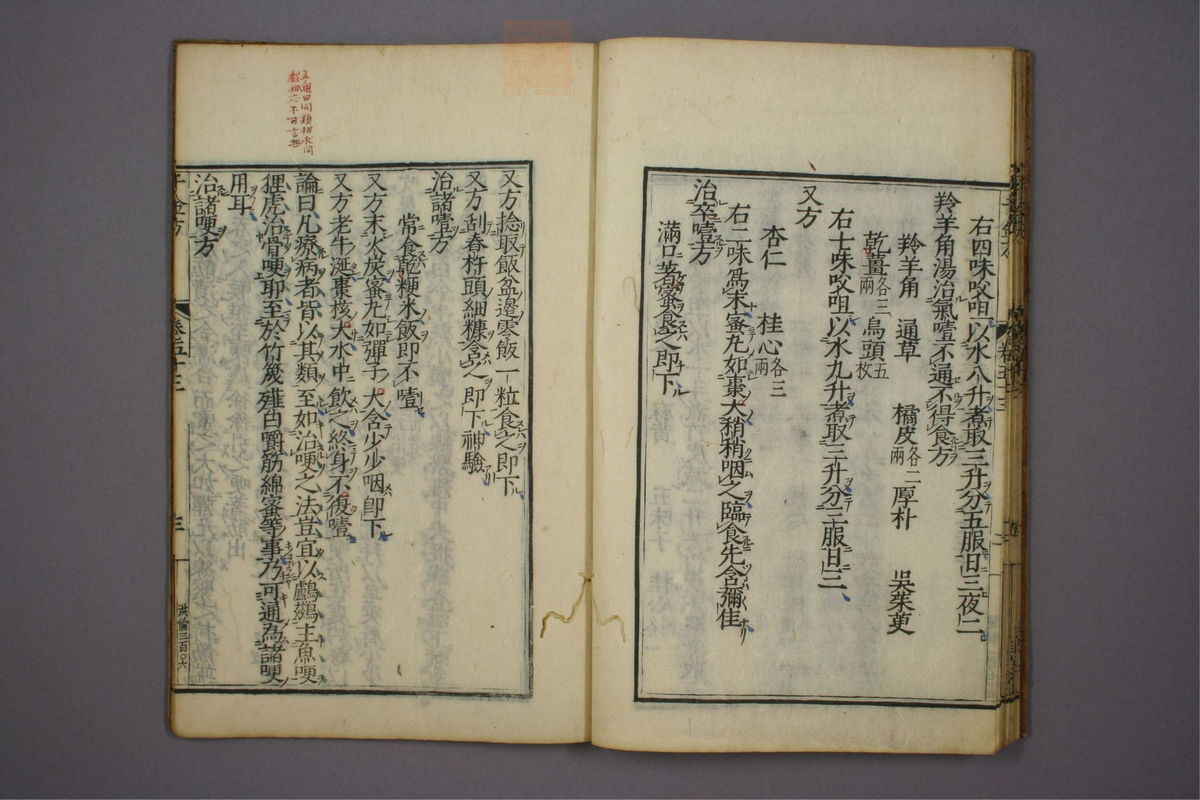 右四味㕮咀以水八升煮取三升分五服日三夜二
羚羊角湯治氣噎不通不得食方
羚羊角　通草　橘皮各二兩　厚朴　吳茱萸
乾薑各三兩　烏頭五枚
右七味㕮咀以水九升煮取三升分三服日三
又方
杏仁　桂心各三兩
右二味爲末蜜丸如棗大稍稍咽之臨食先含彌佳
治卒噎方
滿口著蜜食之即下
又方捻取飯盆邊零飯一粒食之即下
又方刮舂杵頭細糠含之即下神驗
治諸噎方
常食乾粳米飯即不噎
又方末火炭蜜丸如彈子大含少少咽即下
又方老牛涎棗核大水中飲之終身不復噎
論曰凡療病者皆以其類至如治哽之法豈宜以鸕鷀主魚哽
狸虎治骨哽耶至於竹篾薤白嚼筋綿蜜等事乃可通為諸哽
用耳
治諸哽方
千金方　卷五十三　三
洪倫三百〇六